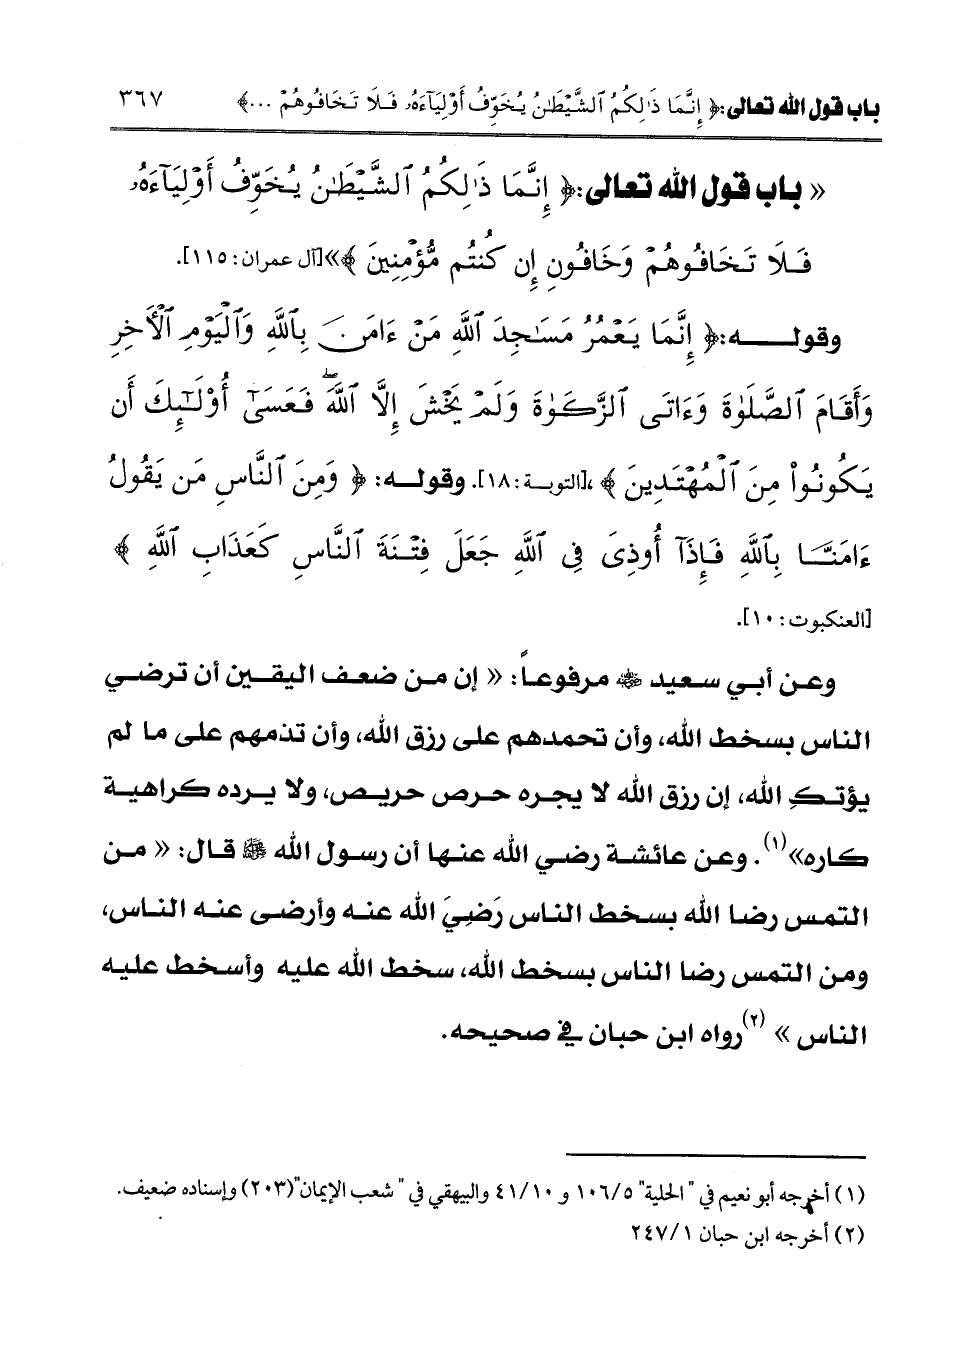 باب قول الله تعالى:﴿ إِنَّمَا ذَٰلِكُمُ ٱلشَّيْطَٰنُ يُخَوِّفُ أَوْلِيَآءَهُۥ فَلَا تَخَافُوهُمْ ...﴾ ٣٦٧
« باب قول الله تعالى:﴿ إِنَّمَا ذَٰلِكُمُ ٱلشَّيْطَٰنُ يُخَوِّفُ أَوْلِيَآءَهُۥ
فَلَا تَخَافُوهُمْ وَخَافُونِ إِن كُنتُم مُّؤْمِنِينَ ﴾»[آل عمران: ١١٥].
وقولـــــه:﴿ إِنَّمَا يَعْمُرُ مَسَٰجِدَ ٱللَّهِ مَنْ ءَامَنَ بِٱللَّهِ وَٱلْيَوْمِ ٱلْأَخِرِ
وَأَقَامَ ٱلصَّلَوٰةَ وَءَاتَى ٱلزَّكَوٰةَ وَلَمْ يَخْشَ إِلَّا ٱللَّهَ ۖ فَعَسَىٰٓ أُوْلَٰٓئِكَ أَن
يَكُونُوا۟ مِنَ ٱلْمُهْتَدِينَ ﴾،[التوبـة: ١٨]. وقولـه: ﴿ وَمِنَ ٱلنَّاسِ مَن يَقُولُ
ءَامَنَّا بِٱللَّهِ فَإِذَآ أُوذِىَ فِى ٱللَّهِ جَعَلَ فِتْنَةَ ٱلنَّاسِ كَعَذَابِ ٱللَّهِ ﴾
[العنكبوت: ١٠].
وعـن أبـي سـعيد ﷺ مرفوعـاً: « إن مـن ضعـف اليقـين أن ترضـي
الناس بسخط الله، وأن تحمدهم على رزق الله، وأن تذمهم على ما لم
يؤتـكِ الله، إن رزق الله لا يجره حـرص حريـص، ولا يـرده كراهيـة
كاره»(١). وعـن عائشـة رضـي الله عنـها أن رسـول الله ﷺ قـال: « مـن
التمس رضا الله بسخط الناس رَضِيَ الله عنـه وأرضـى عنـه النـاس،
ومن التمس رضا الناس بسخط الله، سخط الله عليه وأسـخط عليـه
الناس » (٢)رواه ابن حبان في صحيحه.
(١) أخرجه أبو نعيم في "الحلية" ١٠٦/٥ و ٤١/١٠ والبيهقي في " شعب الإيمان"(٢٠٣) وإسناده ضعيف.
(٢) أخرجه ابن حبان ٢٤٧/١